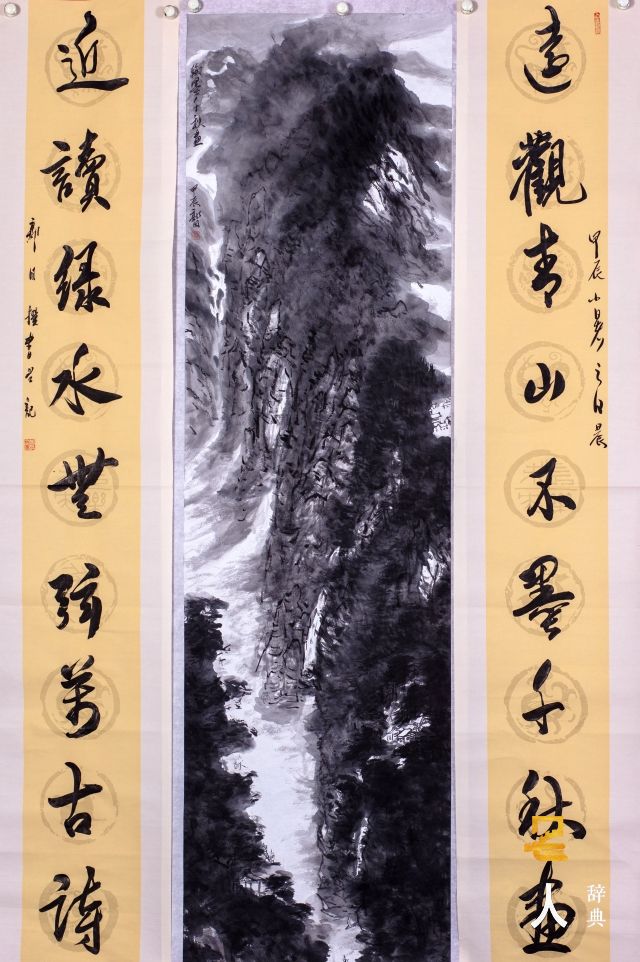 遠觀青山不墨千秋畫
甲辰小暑之日晨
千秋畫
甲辰
近讀緑水無弦萬古詩
撰書
人
辞典